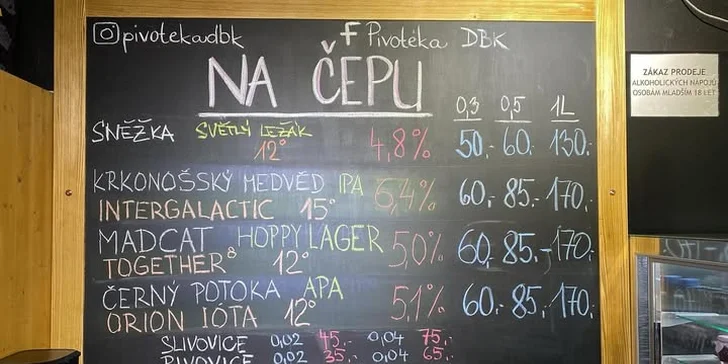 pivotekadbk
Pivotéka DBK
NA ČEPU
0,3 0,5 1L
SNĚŽKA SVĚTLÝ LEŽÁK 4,8% 50,- 60,- 130,-
12°
KRKONOŠSKÝ MEDVĚD IPA 6,4% 60,- 85,- 170,-
INTERGALACTIC 15°
MADCAT HOPPY LAGER 5,0% 60,- 85,- 170,-
TOGETHER⁸ 12°
ČERNÝ POTOKA APA 5,1% 60,- 85,- 170,-
ORION IOTA 12°
SLIVOVICE 0,02 45,- 0,04 75,-
PIVOVICE 0,02 35,- 0,04 65,-
ZÁKAZ PRODEJE
ALKOHOLICKÝCH NÁPOJŮ
OSOBÁM MLADŠÍM 18 LET